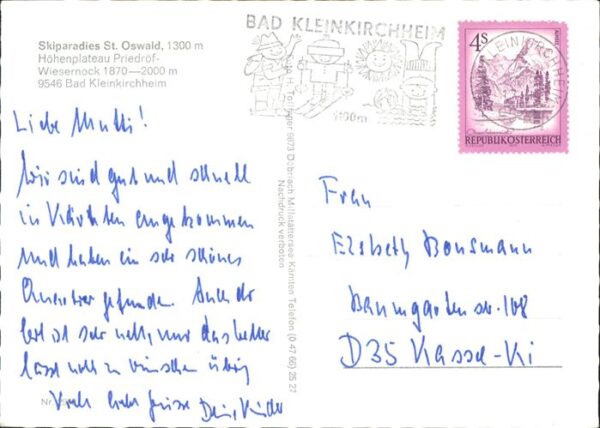 Skiparadies St. Oswald, 1300 m
Höhenplateau Priedröf-
Wiesernock 1870—2000 m
9546 Bad Kleinkirchheim
BAD KLEINKIRCHHEIM
1100m
KLEINKIRCHHEIM
4S
REPUBLIK ÖSTERREICH
Liebe Mutti!
Wir sind gut und schnell
in Kärnten angekommen
und haben ein sehr schönes
Quartier gefunden. Auch der
Ort ist sehr nett, nur das Wetter
lässt noch zu wünschen übrig
Viele liebe Grüsse Deine Kinder
Nr.
Toллinger 9873 Döbriach Millstättersee Kärnten Telefon (0 47 66) 25 27
Nachdruck verboten
Frau
Elsbeth Bonsmann
Baumgartenstr. 108
D35 Kassel-Ki